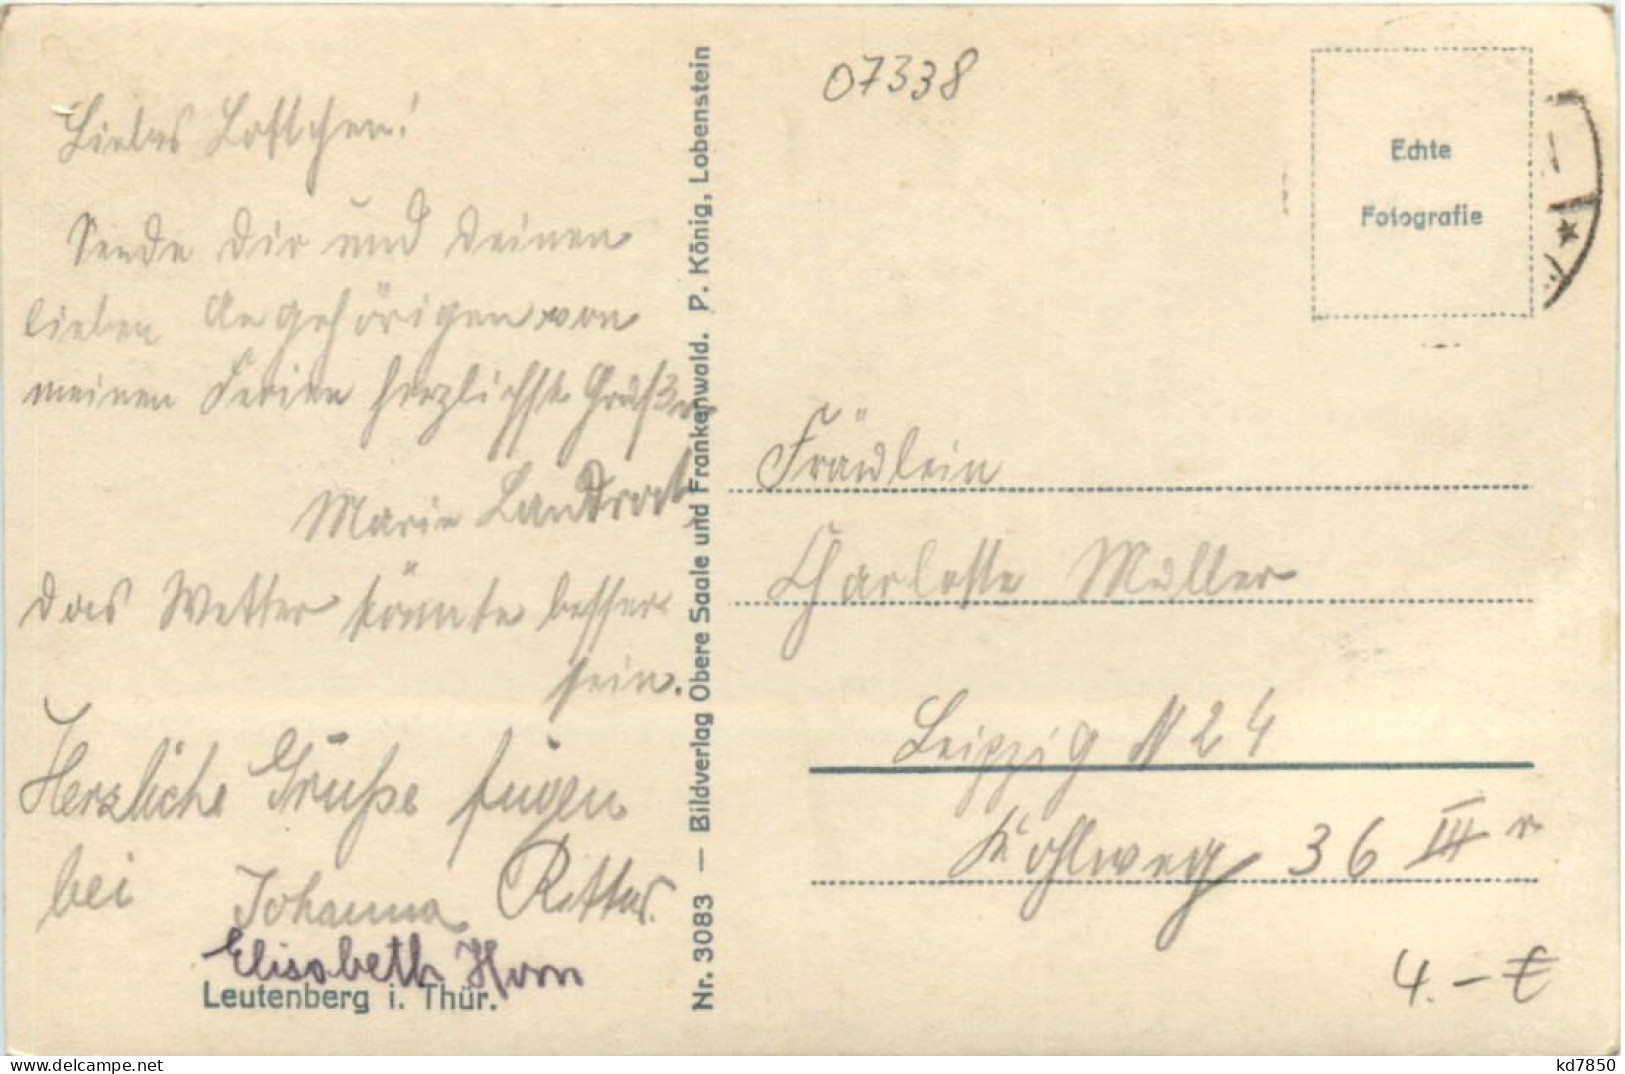 Liebes Lottchen!
Sende Dir und Deinen
lieben Angehörigen von
meinen Ferien herzlichste Grüße
Marie Landrock
Das Wetter könnte besser
sein.
Herzliche Grüße fügen
bei
Johanna
Elisabeth Horn
Leutenberg i. Thür.
Nr. 3083 — Bildverlag Obere Saale und Frankenwald. P. König, Lobenstein
07338
Echte
Fotografie
Fräulein
Charlotte Müller
Leipzig N 24
Kohlweg 36 III r
4.- €
kd7850